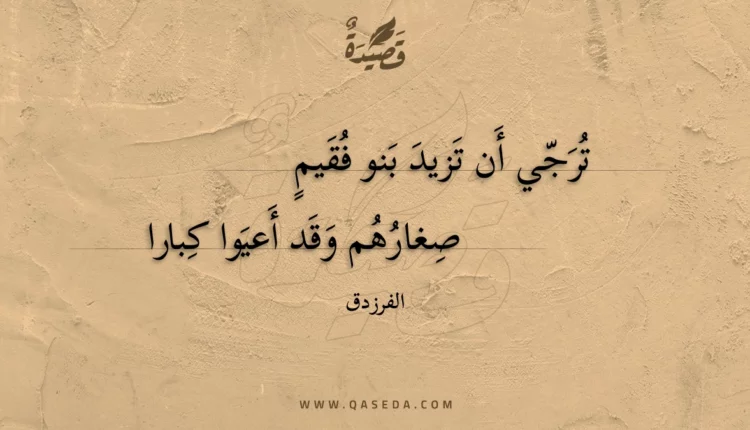 قَصِيدَةٌ
تُرَجّي أَن تَزيدَ بَنو فُقَيمٍ
صِغارُهُم وَقَد أَعيَوا كِبارا
الفرزدق
WWW.QASEDA.COM